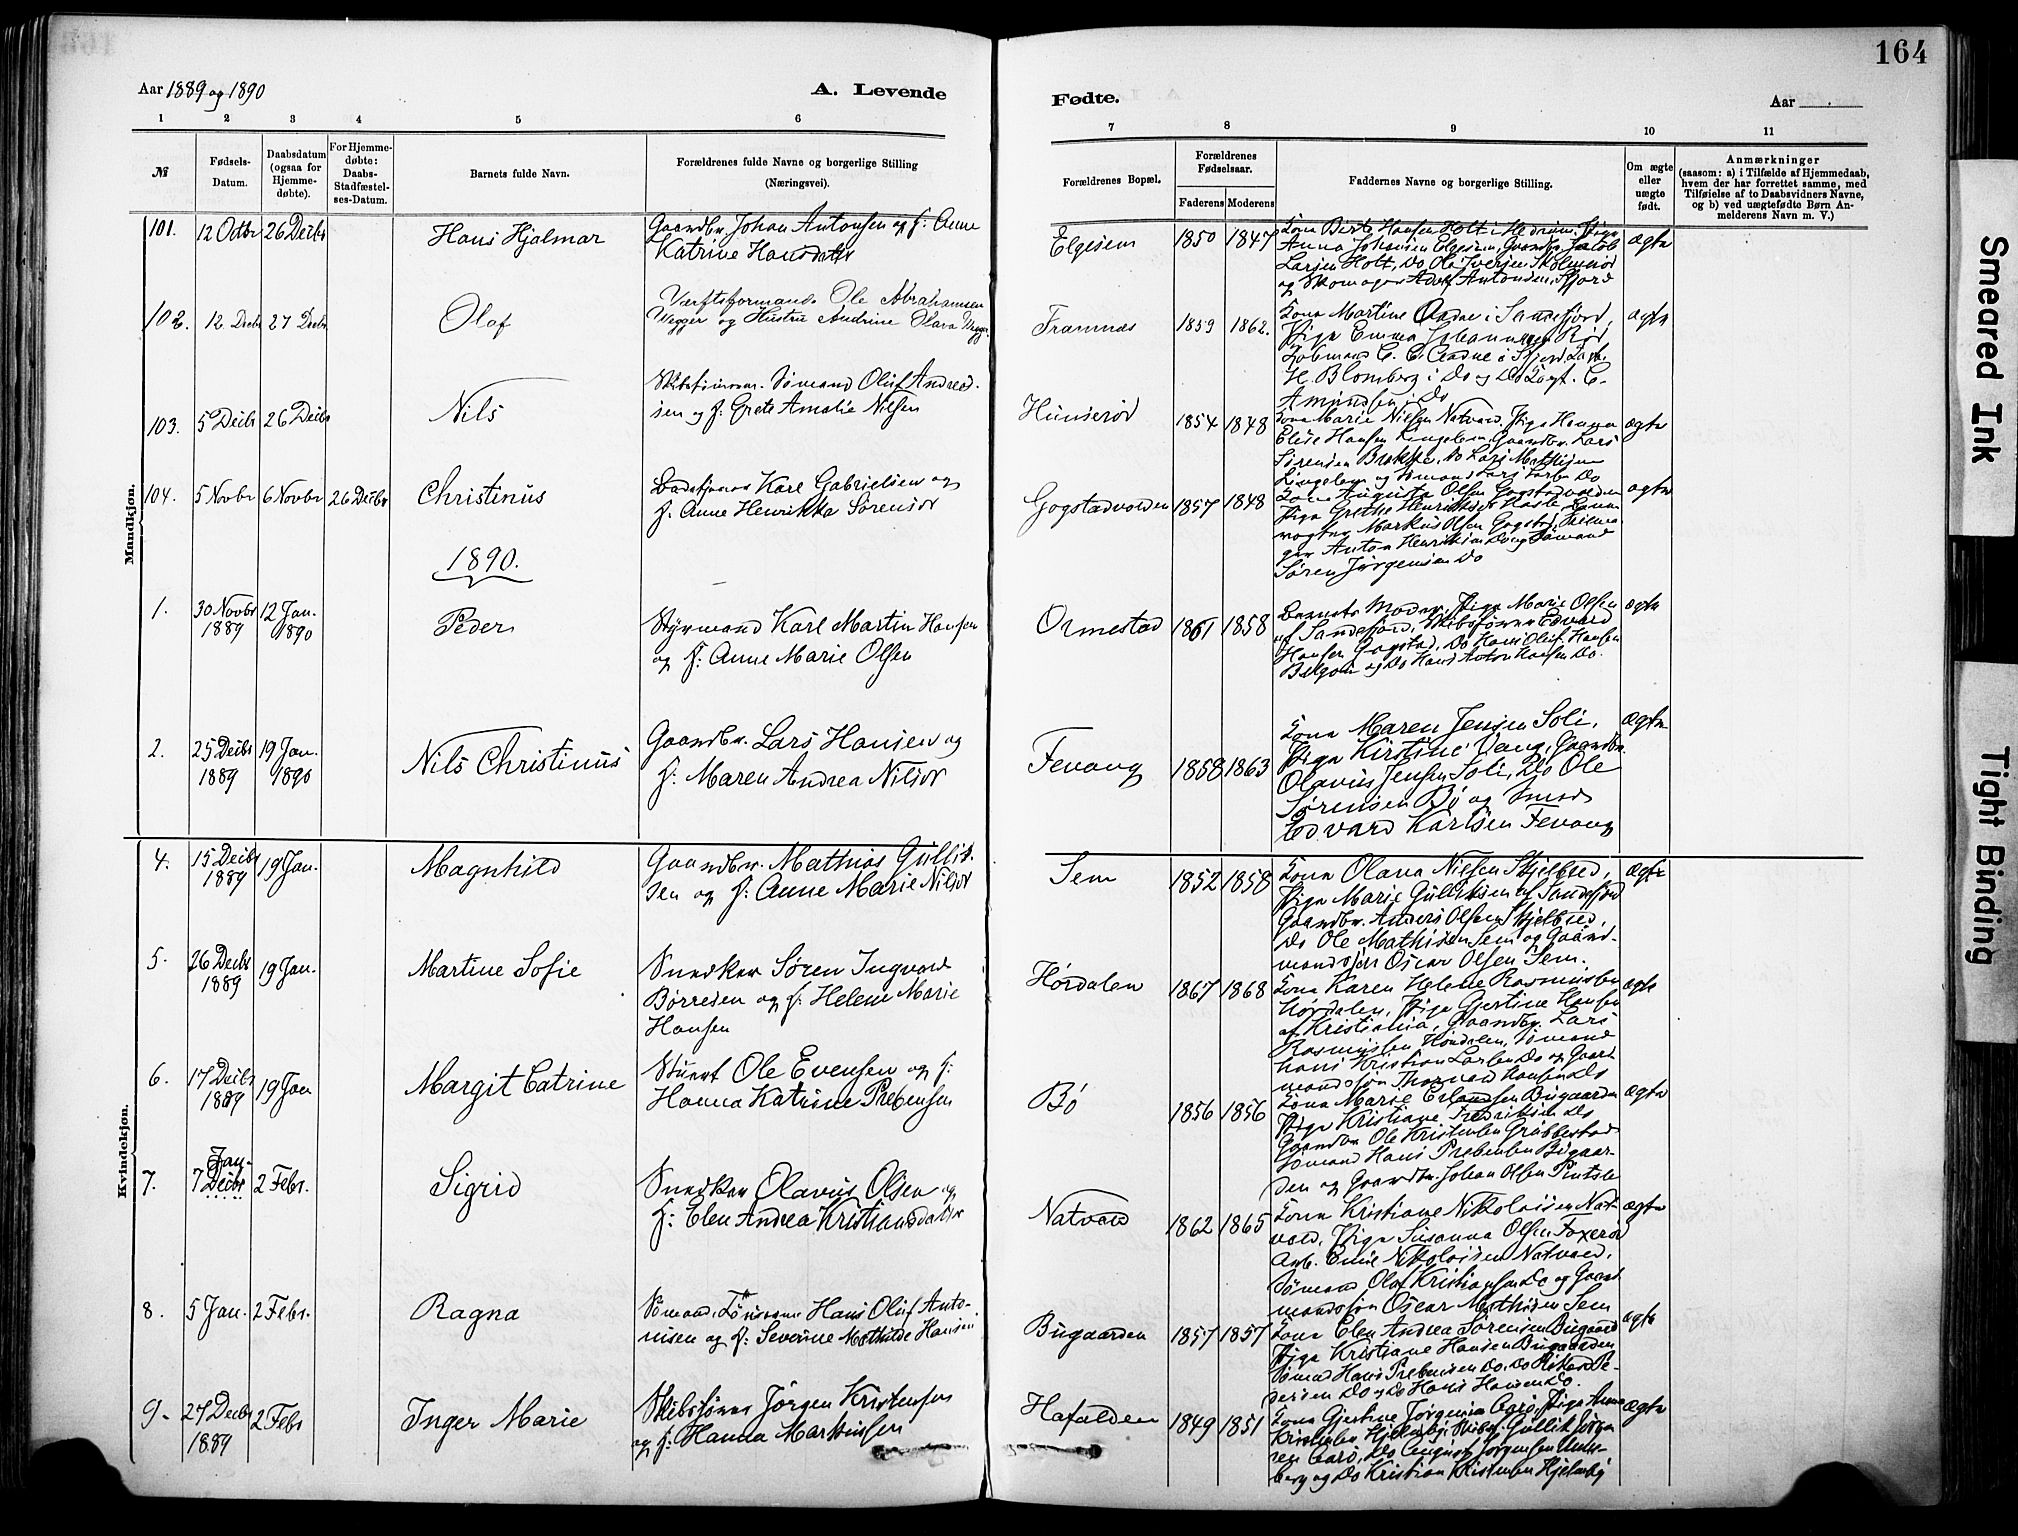 164
Aar 1889 og 1890
A. Levende
Fødte.
Aar
1 2 3 4 5 6 7 8 9 10 11
№
Fødsels-
Datum.
Daabsdatum
(ogsaa for
Hjemme-
døbte).
For Hjemme-
døbte:
Daabs-
Stadfæstel-
ses-Datum.
Barnets fulde Navn.
Forældrenes fulde Navne og borgerlige Stilling
(Næringsvei).
Forældrenes Bopæl.
Forældrenes
Fødselsaar.
Faderens Moderens
Faddernes Navne og borgerlige Stilling.
Om ægte
eller
uægte
født.
Anmærkninger
(saasom: a) i Tilfælde af Hjemmedaab,
hvem der har forrettet samme, med
Tilføielse af to Daabsvidners Navne,
og b) ved uægtefødte Børn An-
melderens Navn m. V.)
Mandkjøn.
101. 12 Octbr 26 Decbr Hans Hjalmar
Gaardbr. Johan Antonsen og h: Anne
Katrine Hansdatter
Elgesem 1850 1847
Kona Berte Hansen Holt i Hedrum, Pige
Anna Johansen Elgesem, Gaardbr. Jacob
Larsen Holt, Do Ole Iversen
og Skomager Adolf Antonsen, Sfjord
ægte
102. 12 Decbr 27 Decbr Olaf
Værftsformand Ole Abrahamsen
Wegger og Hustru Andrine Olava Wegger
Framnæs 1859 1862.
Kona Martine Aadne i Sandefjord,
Pige Emma Johannessen Rød,
Kobmand C. C. Aadne i Sfjord,
H. Blomberg i Do og Do C.
Amundsen i Do
ægte
103. 5 Decbr 26 Decbr Nils
Skibstømm. Sømand Oluf Andrea-
sen og h: Grete Amalie Nilsen
Hunserød 1854 1848
Kona Marie Nielsen Natvald, Pige Hanna
Elise Hansen Lingelem, Gaardbr. Lars
Sørensen Brekke, Do Lars Mathisen
Lingelem og Sømand Lars Larsen Do
ægte
104. 5 Novbr 6 Novbr 26 Decbr Christinus
Karl Gabrielsen og
h: Anne Henrikke Sørensdr
Gogstadvolden 1857 1848
Kona Augusta Olsen Gogstadvolden
Pige Grethe Henriksen Hasle,
vogter Markus Olsen Gogstad,
Anton Henriksen Do og Sømand
Søren Jørgensen Do
ægte
1890.
1. 30 Novbr 1889 12 Jan. 1890 Peder
Styrmand Karl Martin Hansen
og h: Anne Marie Olsen
Ormestad 1861 1858
Barnets Moder, Pige Marie Olsen
af Sandefjord, Skibsfører Edvard
Hansen Gogstad, Do Hans Oluf Hansen
og Do Hans Anton Hansen Do.
ægte
2. 25 Decbr 1889 19 Jan. 1890 Nils Christinus
Gaardbr. Lars Hansen og
h: Maren Andrea Nilsdr
Fevang 1858 1863
Kona Maren Jensen Soli,
Pige Kirstine Vang, Gaardbr.
Olavus Jensen Soli, Do Ole
Sørensen Bø og Smed
Edvard Karlsen Fevang
ægte
Kvindekjøn.
4. 15 Decbr 1889 19 Jan. Magnhild
Gaardbr. Mathias Gullik-
sen og h: Anne Marie Nilsdr
Sem 1852 1858
Kona Olava Nielsen Skjelbred,
Pige Marie Gulliksen af Sandefjord
Gaardbr. Anders Olsen Skjelbred,
Do Ole Mathisen Sem og Gaard-
mandssøn Oscar Olsen Sem.
ægte
5. 26 Decbr 1889 19 Jan. Martine Sofie
Snedker Søren Ingvard
Børresen og h: Helene Marie
Hansen
Hørdalen 1867 1868
Kona Karen Helene Rasmussen
Hørdalen, Pige Gjertine Hansen
af Kristiania, Gaardbr. Lars
Rasmussen Hørdalen, Sømand
Hans Kristian Larsen Do og Gaard
mandssøn Thorvald Hansen Do
ægte
6. 17 Decbr 1889 19 Jan Margit Catrine
Stuert Ole Evensen og h:
Hanna Katrine Prebensen
Bø 1856 1856
Kona Marie Erlandsen Bugaarden
Pige Kristiane Fredriksen Do
Gaardbr Ole Kristensen Grubbestad
Sømand Hans Prebensen Bugaar-
den og Gaardbr. Johan Olsen Pindsle
ægte
7. 7 Decbr Jan. 2 Febr. Sigrid
Snedker Olavus Olsen og
h: Elen Andrea Kristiansdatter
Natvald 1862 1865
Kona Kristiane Nikolaisen Nat-
vald, Pige Susanna Olsen Foxerød
Arb. Emil Nikolaisen Natvald,
Sømand Olaf Kristiansen Do og Gaard
mandssøn Oscar Mathisen Sem
ægte
8. 5 Jan. 2 Febr. Ragna
Sømand, Tømrerm Hans Oluf Anto-
nisen og h: Severine Mathilde Hansen
Bugaarden 1857 1857
Kona Elen Andrea Sørensen Bugaard
Pige Kristiane Hansen Bugaarden
Sømand Hans Prebensen Do, Do Pe-
dersen Do og Do Hans Hansen Do.
ægte
9. 27 Decbr 1889 2 Febr Inger Marie
Skibsfører Jørgen Kristensen
og h: Hanna Markussen
Hafalden 1849 1851
Kona Gjertine Jørgensen Aarø, Pige Anna
Kristensen Hjelmby, Skibsf. Gullik Jørgen-
sen Aarø, Do August Jørgensen
berg og Do Kristian Kristensen Hjelmby
ægte
Smeared Ink
Tight Binding